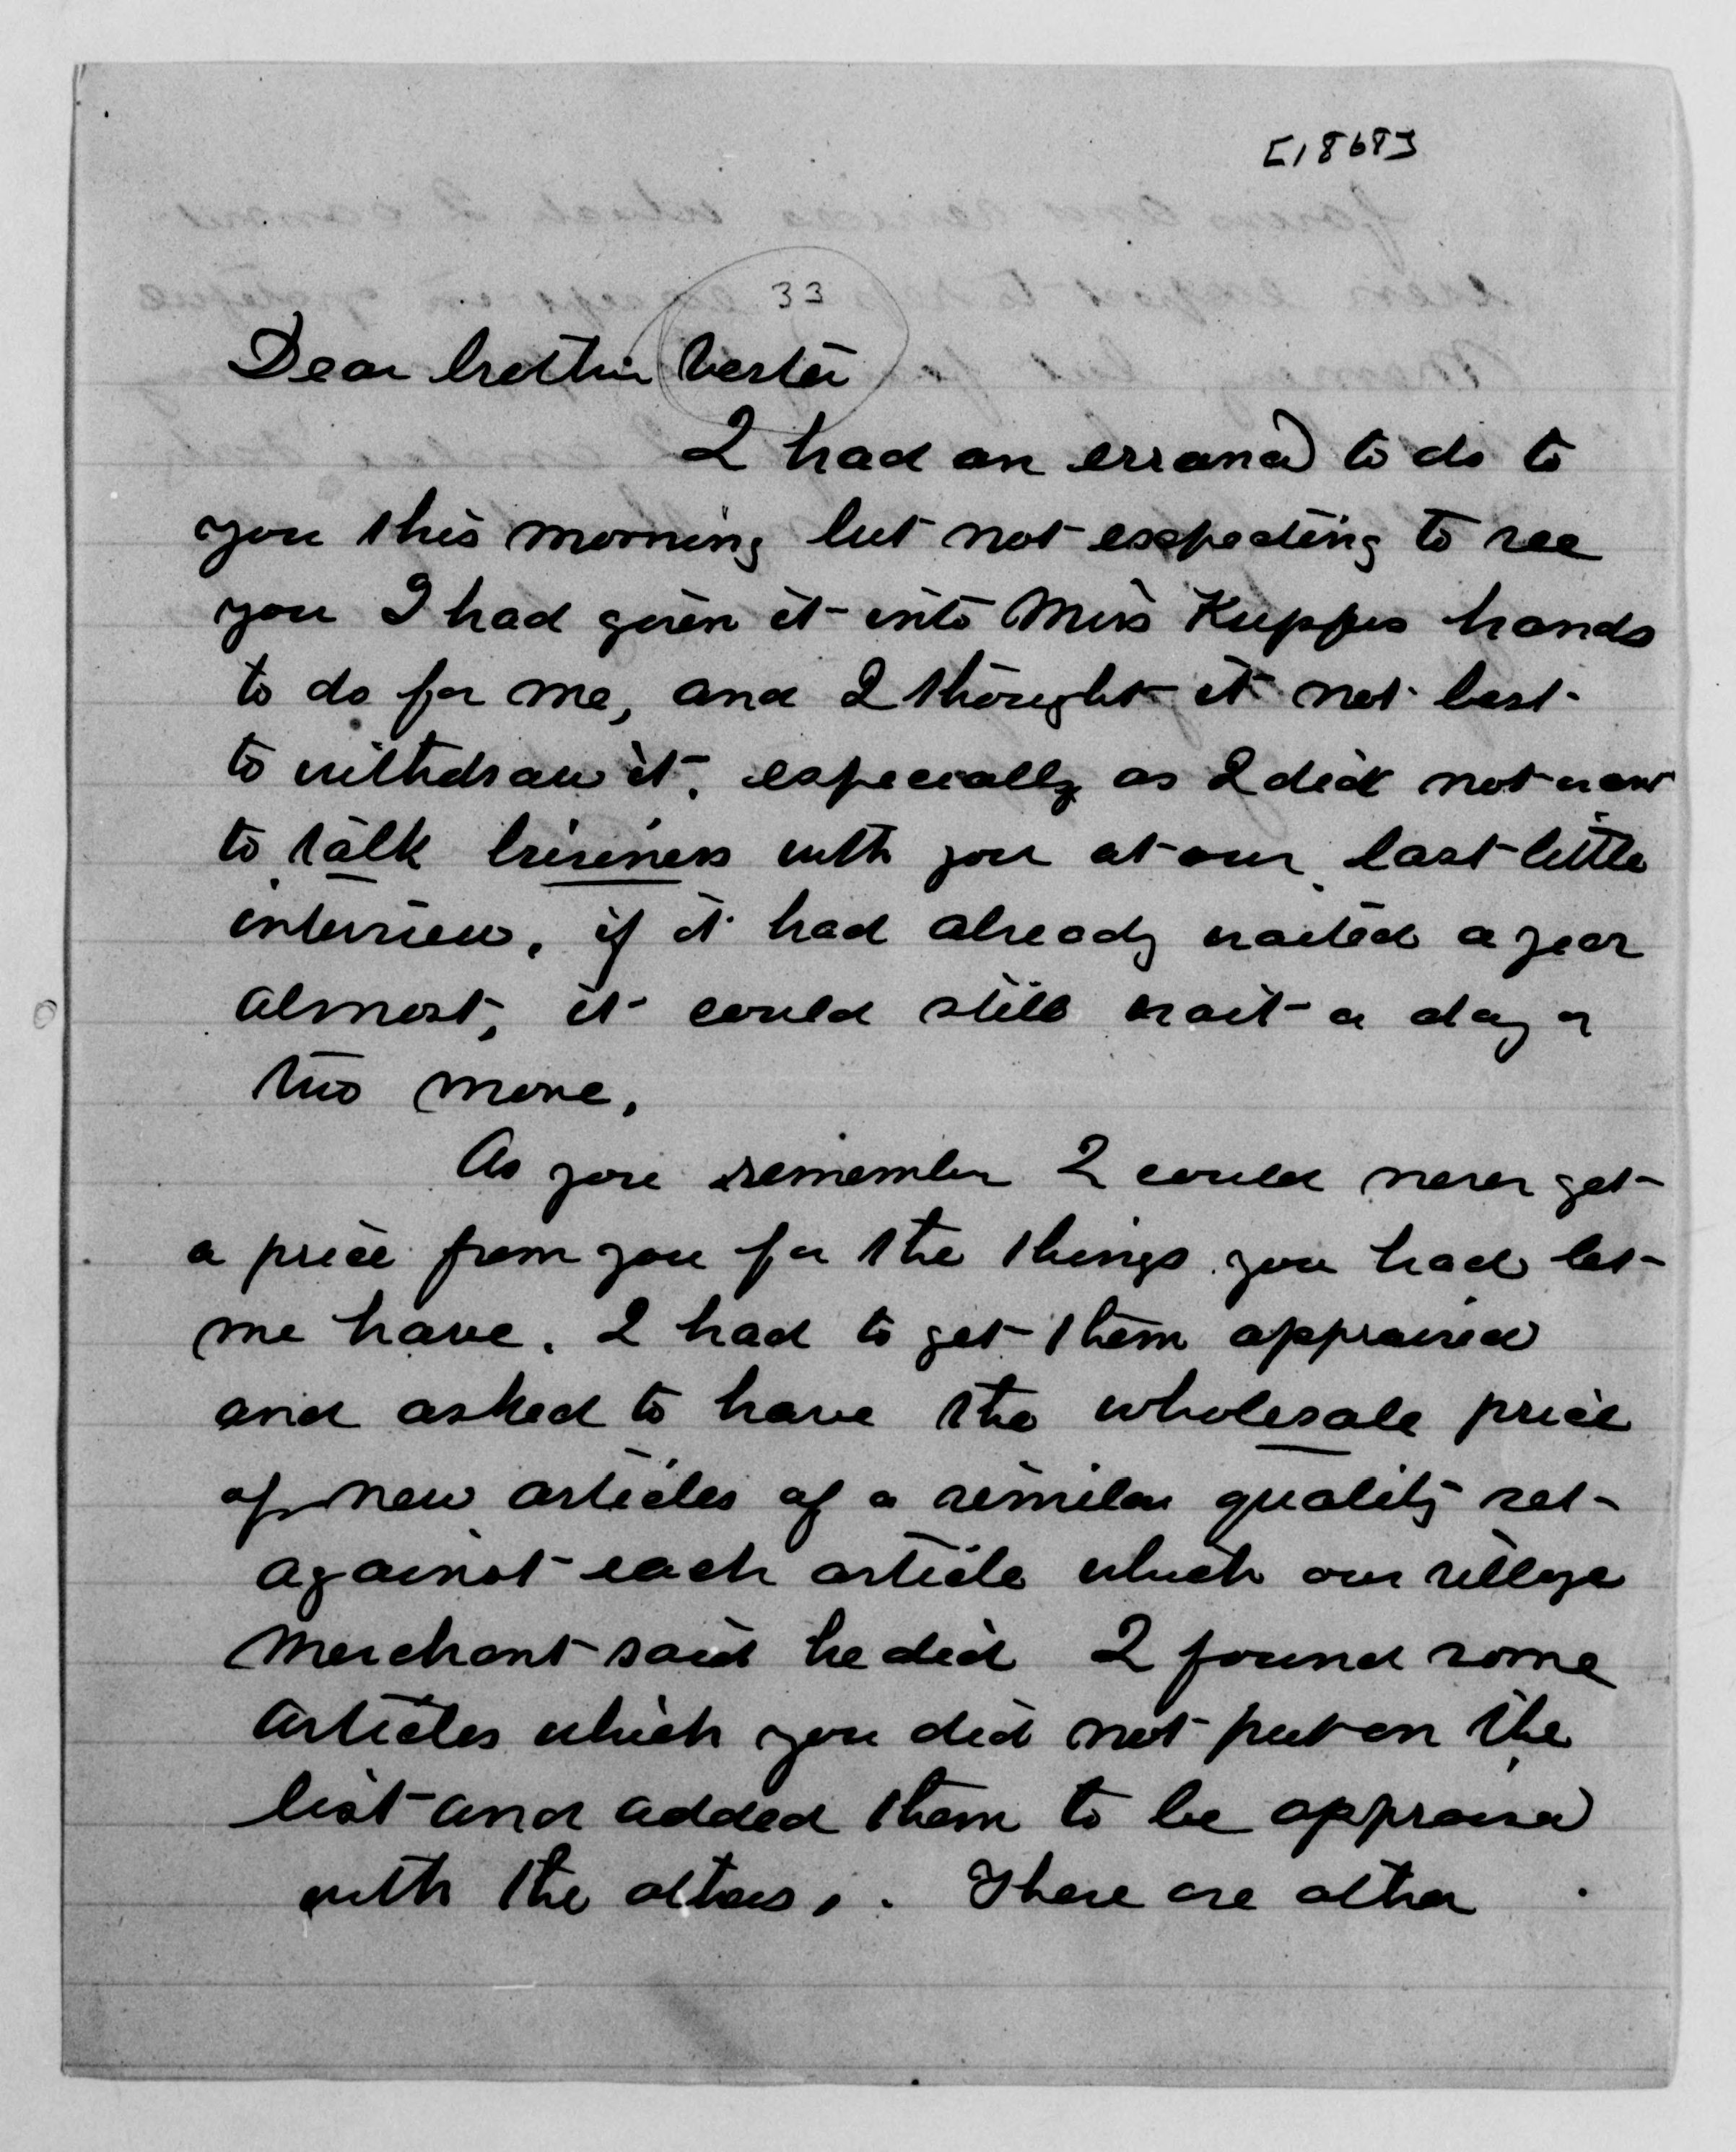 [1868]
33
Dear brother Vester
I had an errand to do to
you this morning but not expecting to see
you I had given it into Miss Kupfes hands
to do for me, and I thought it not best
to withdraw it, especially as I did not want
to talk business with you at our last little
interview, if it had already waited a year
almost, it could still wait a day or
two more.
As you remember I could never get
a price from you for the things you had let
me have. I had to get them appraised
and asked to have the wholesale price
of new articles of a similar quality set
against each article which our village
merchant said he did I found some
articles which you did not put on the
list and added them to be appraised
with the others, . There are other